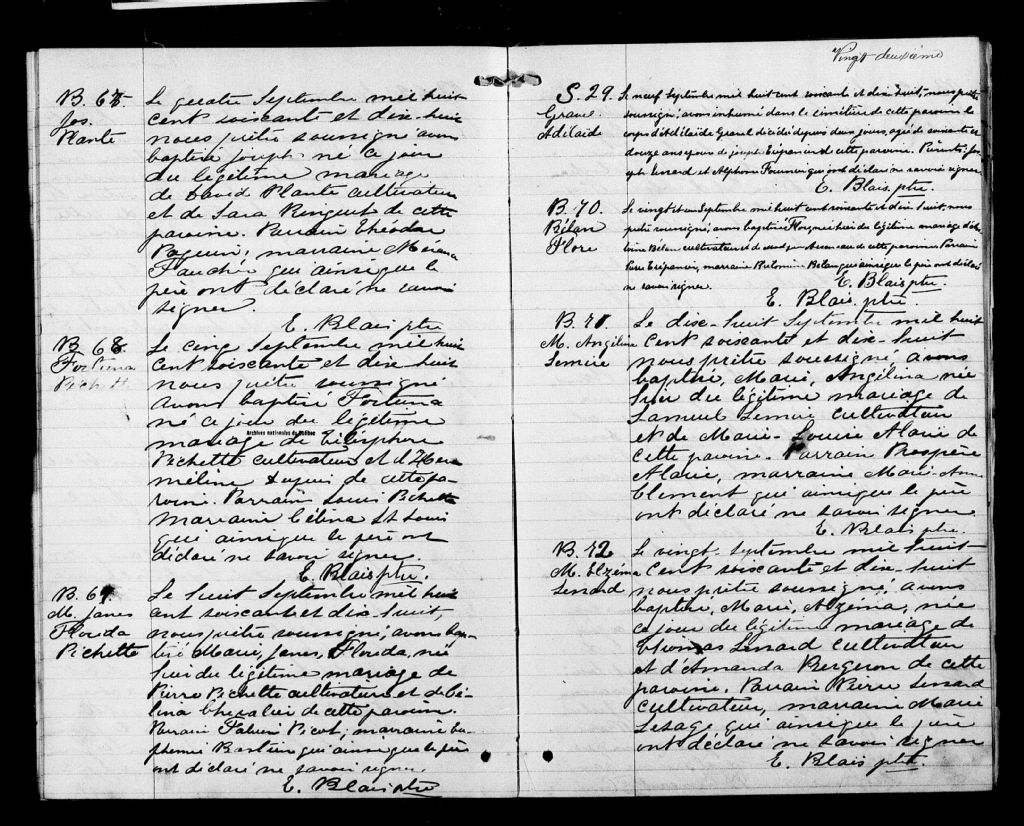 B. 67
Jos.
Plante
Le quatre Septembre mil huit
cent soixante et dix-huit
nous prêtre soussigné avons
baptisé joseph né ce jour
du légitime mariage
de David Plante cultivateur
et de Sara Ringuet de cette
paroisse. Parrain Théodor
Paquin; marraine
Fauchir qui ainsi que le
père ont déclaré ne savoir
signer.
E. Blais ptre
B. 68
Fortuna
Pichett
Le cinq Septembre mil huit
cent soixante et dix-huit
nous prêtre soussigné
avons baptisé Fortuna
né ce jour du légitime
Archives nationales du Québec
mariage de Télésphore
Pichette cultivateur et d'Her
méline Dupuis de cette pa-
roisse. Parrain Louis Pichette
marraine Célina St Louis
qui ainsi que le père ont
déclaré ne savoir signer.
E. Blais ptre.
B. 69.
M. Janes
Florida
Pichette
Le huit Septembre mil huit
cent soixante et dix-huit,
nous prêtre soussigné, avons bap-
tisé Marie, Janes, Florida, née
hier du légitime mariage de
Pierre Pichette cultivateur et de Cé-
lina Chevalier de cette paroisse.
Parrain Fabien Picot, marraine Eu-
phemie qui ainsi que le père
ont déclaré ne savoir signer.
E. Blais ptre
Vingt deuxième
S. 29.
Gravel
Adélaïde
Le neuf Septembre mil huit cent soixante et dix huit, nous prêtre
soussigné, avons inhumé dans le cimetière de cette paroisse le
corps d'Adélaïde Gravel décédé depuis deux jours, agée de soixante et
douze ans épouse de joseph de cette paroisse. Présents: Jos
eph Lessard et Alphonse Fournier qui ont déclaré ne savoir signer
E. Blais, ptre.
B. 70.
Bélan
Flore
Le vingt et un Septembre mil huit cent soixante et dix huit, nous
prêtre soussigné, avons baptisé Flore, née hier du légitime mariage
Bélan cultivateur et de de cette paroisse Parrain
Pierre marraine Belan qui ainsi que le père ont déclaré
ne savoir signer.
E. Blais ptre.
E. Blais ptre.
B. 71
M. Angélina
Lemire
Le dix-huit Septembre mil huit
cent soixante et dix-huit
nous prêtre soussigné avons
baptisé, Marie, Angélina née
hier du légitime mariage de
Samuel Lemire cultivateur
et de Marie-Louise Alarie de
cette paroisse. Parrain Prospère
Alarie, marraine Marie-Ann
Clément qui ainsi que le père
ont déclaré ne savoir signer
E. Blais ptre.
B. 72
M. Elzéma
Lessard
Le vingt-septembre mil huit
cent soixante et dix-huit
nous prêtre soussigné, avons
baptisé, Marie, Alzéma, née
ce jour du légitime mariage de
Thomas Lessard cultivateur
et d'Amanda Bergeron de cette
paroisse. Parrain Pierre Lessard
cultivateur, marraine Marie
Lesage qui ainsi que le père
ont déclaré ne savoir signer
E. Blais ptre